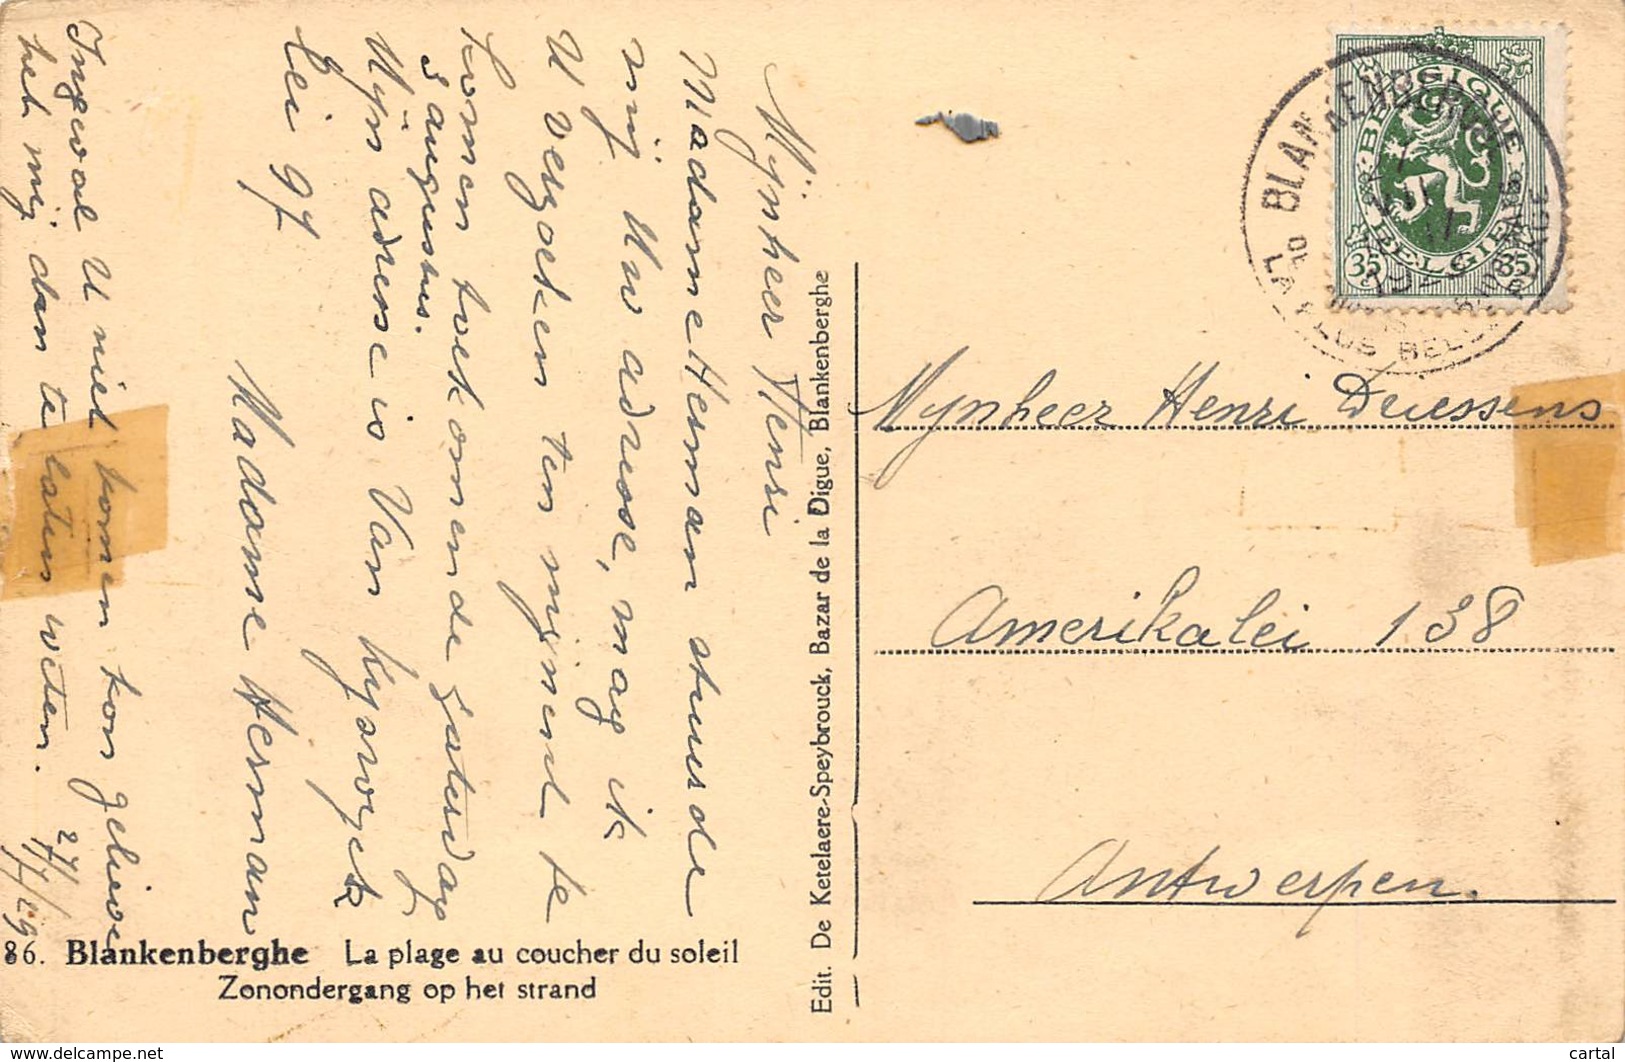 Mijnheer Henri
Madame Herman stuurde
mij Uw adresse, mag ik
U verzoeken ten mijnent te
komen toekomende zaterdag
3 augustus.
Mijn adresse is Van
Lei 97
Madame Herman
Ingeval U niet komen kon gelieve
het mij dan te laten weten.
27/7/29
86. Blankenberghe La plage au coucher du soleil
Zonondergang op het strand
Edit. De Ketelaere-Speybrouck, Bazar de la Digue, Blankenberghe
BELGIQUE
BELGIE
35 35
LA PLUS BELLE PLAGE
Mynheer Henri Driessens
Amerikalei 138
Antwerpen.
cartal
https://www.delcampe.net